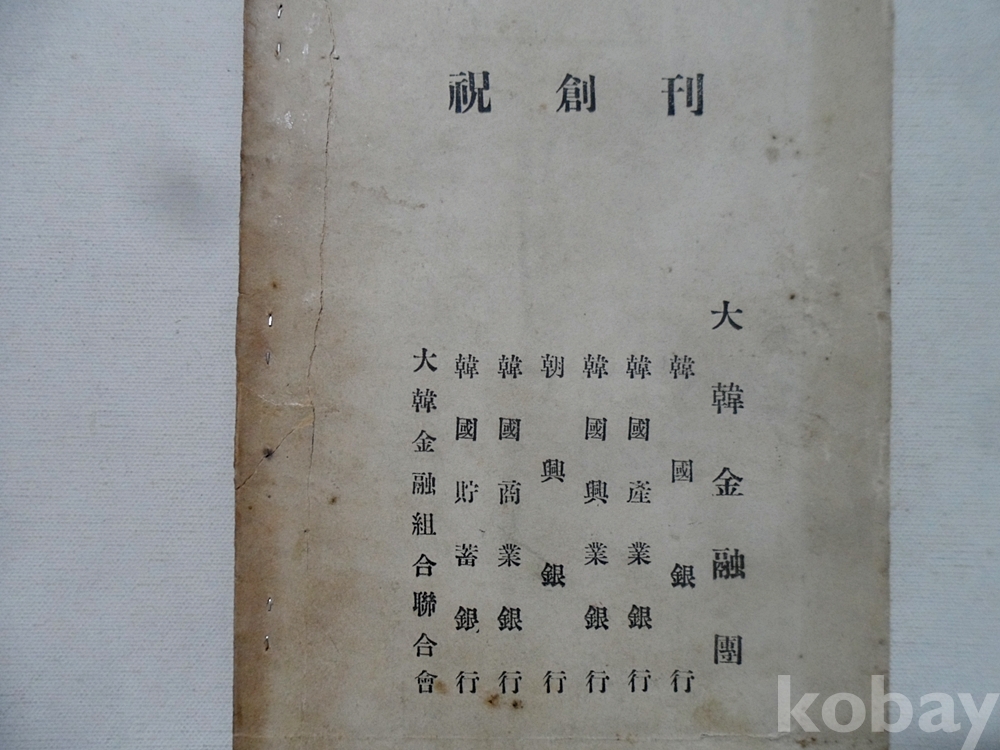 祝創刊
大韓金融團
韓國銀行
韓國產業銀行
韓國興業銀行
朝興銀行
韓國商業銀行
韓國貯蓄銀行
大韓金融組合聯合會
kobay